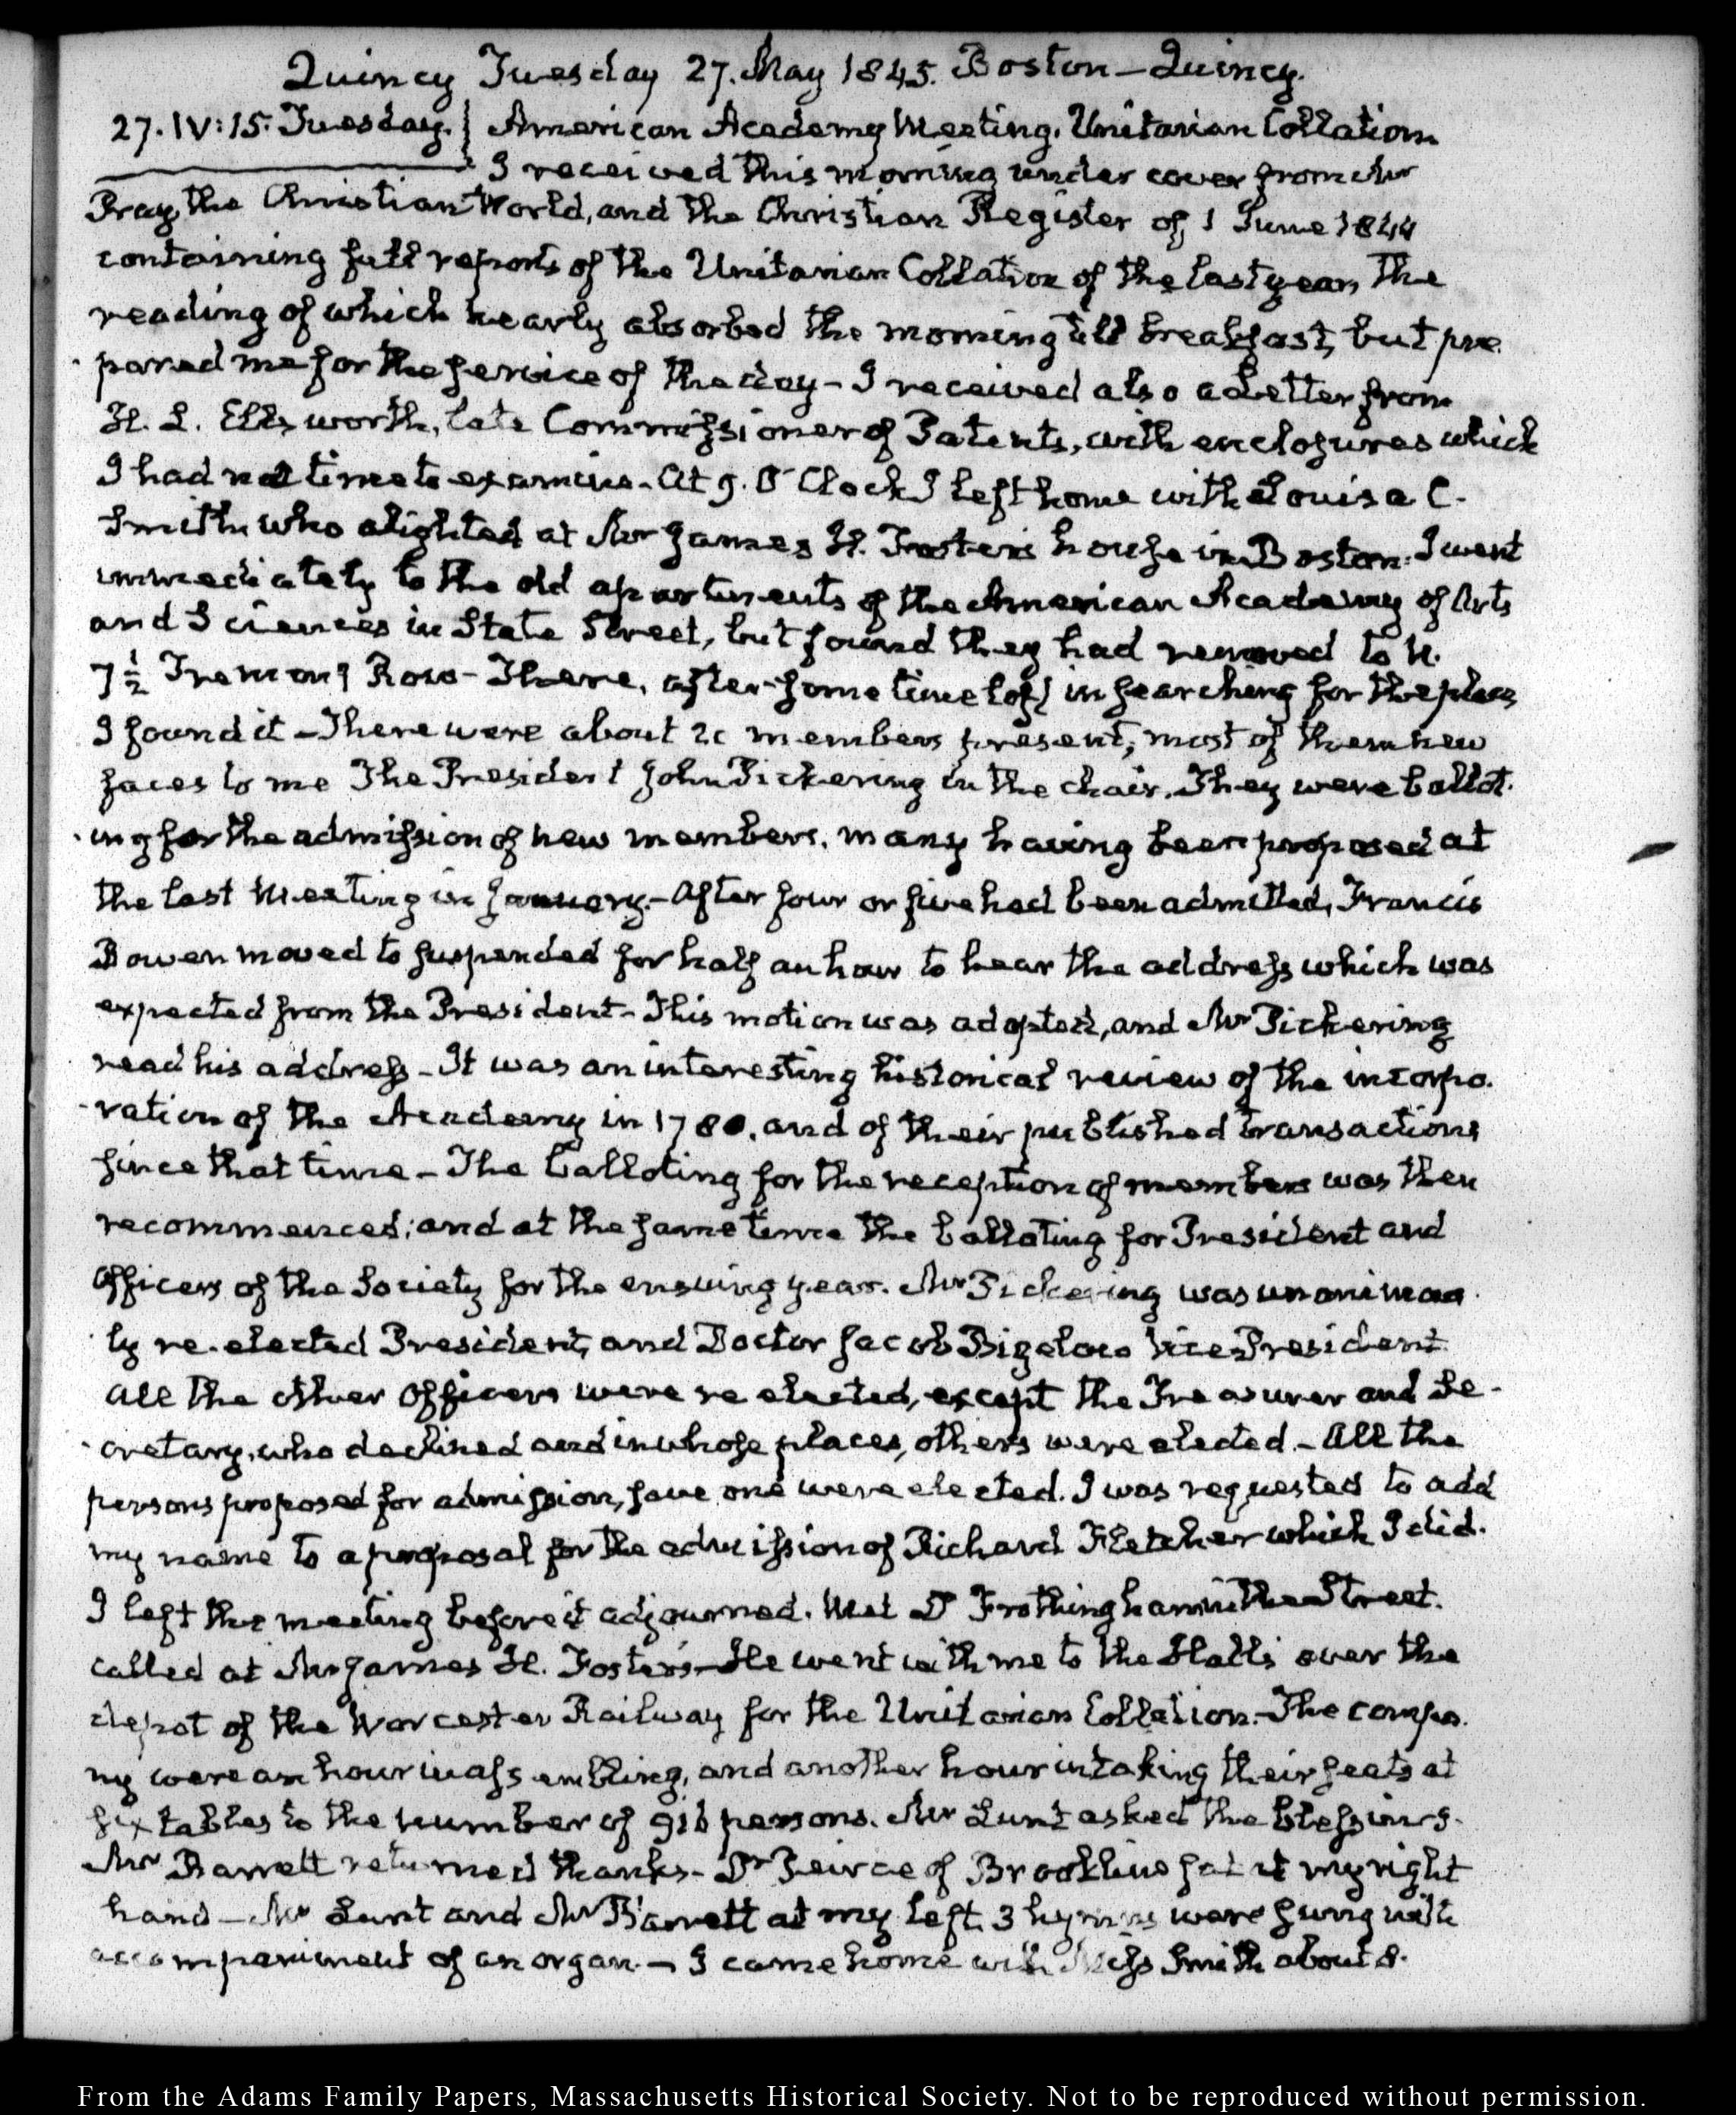 Quincy Tuesday 27. May 1845. Boston — Quincy.
27. IV:15. Tuesday. } American Academy Meeting. Unitarian Collation
I received this morning under cover from Mr
Pray, the Christian World, and the Christian Register of 1 June 1844
containing full reports of the Unitarian Collation of the last year, The
reading of which nearly absorbed the morning till breakfast, but pre
pared me for the service of the day — I received also a Letter from
H. L. Ellsworth, late Commissioner of Patents, with enclosures which
I had not time to examine. At 9. O'Clock I left home with Louisa C.
Smith who alighted at Mr James H. Foster's house in Boston. I went
immediately to the old apartments of the American Academy of Arts
and Sciences in State Street, but found they had removed to N.
7 1/2 Tremont Row — There, after some time lost in searching for the place
I found it — There were about 20 members present, most of them new
faces to me The President John Pickering in the chair. They were ballot-
-ing for the admission of new members, many having been proposed at
the last Meeting in January — After four or five had been admitted, Francis
Bowen moved to suspended for half an hour to hear the address which was
expected from the President — This motion was adopted, and Mr Pickering
read his address — It was an interesting historical review of the incorpo-
-ration of the Academy in 1780, and of their published transactions
since that time — The balloting for the reception of members was then
recommenced; and at the same time the ballating for President and
Officers of the Society for the ensuing year. Mr Pickering was unanimou
ly re-elected President, and Doctor Jacob Bigelow Vice President
All the other Officers were re elected, except the Treasurer and Se-
-cretary, who declined and in whose places, others were elected. — All the
persons proposed for admission, save one were elected. I was requested to add
my name to a proposal for the admission of Richard Fletcher which I did.
I left the meeting before it adjourned. Met Dr Frothingham in the Street.
called at Mr James H. Foster's — He went with me to the Halls over the
depot of the Worcester Railway for the Unitarian Collation. — The compa-
ny were an hour in assembling, and another hour in taking their seats at
six tables to the number of 916 persons. Mr Lunt asked the blessing.
Mr Barrett returned thanks — Dr Peirce of Brookline sat at my right
hand — Mr Lunt and Mr Barrett at my left. 3 hymns were sung with
accompaniment of an organ. — I came home with Miss Smith about 8.
From the Adams Family Papers, Massachusetts Historical Society. Not to be reproduced without permission.